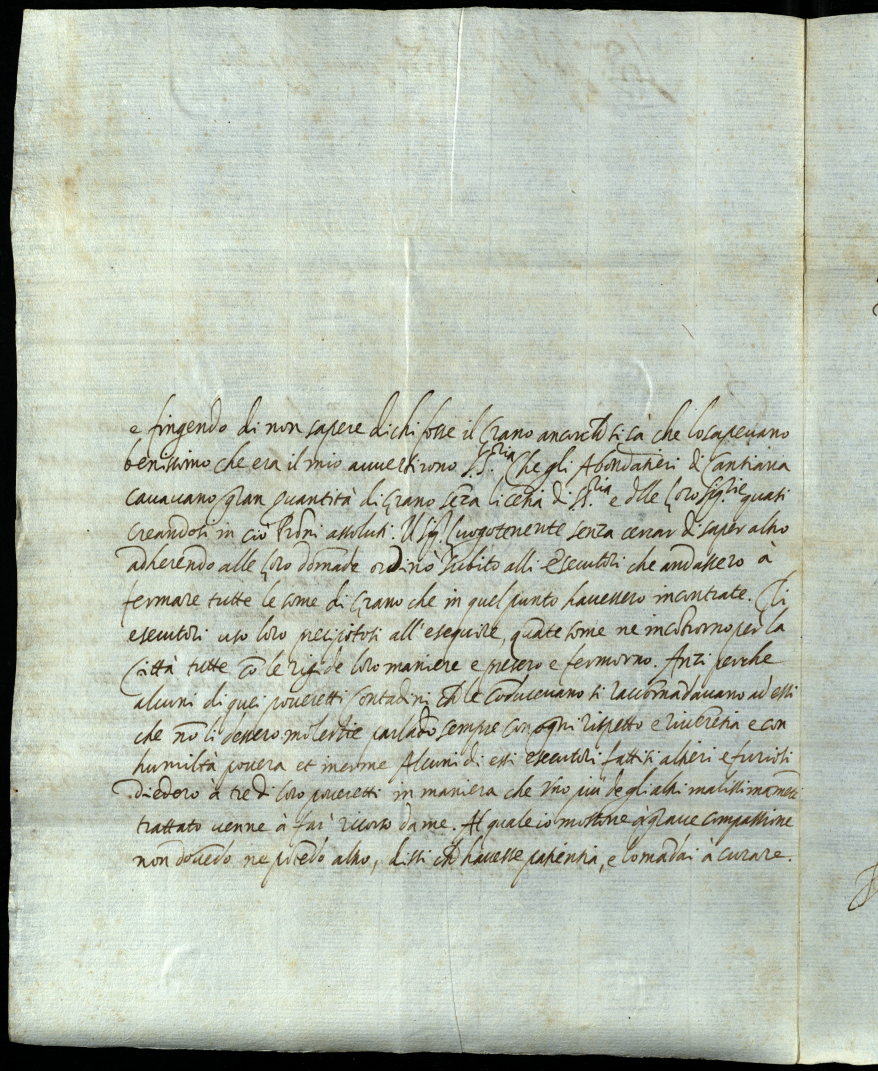 e fingendo di non sapere di chi fosse il Grano ancorchè si sà che lo sapeuano
benissimo che era il mio auuertirono S.S.ria che gli Abondatieri di Cantiana
cauauano gran quantità di Grano sēza licētia di S.S.ria e dlle loro Sig.rie quasi
creandosi in ciò Prōni assoluti. Il Sig.r luogotenente senza cercar di saper altro
adherendo alle loro domāde ordinò subito alli esecutori che andassero à
fermare tutte le some di Grano che in quel punto hauessero incontrate. Gli
esecutori uso loro precipitosi all'eseguire, quāte some ne incōtrorno per la
Città tutte cō le rigide loro maniere e presero e fermorno. Anzi perche
alcuni di quei poueretti Contadini chè le cōduceuano si raccomādauano ad essi
che nō li dessero molestie parlādo sempre con ogni rispetto e riuerentia e con
humiltà pouera et inerme Alcuni di essi esecutori fattisi altieri e furiosi
diedero à tre di loro poueretti in maniera che vno più degli altri malissimamēte
trattato uenne à far ricorso da me. Al quale io mosso à graue compassione
non douēdo ne potēdo altro, dissi chè hauesse patientia, e lo mādai à curare.